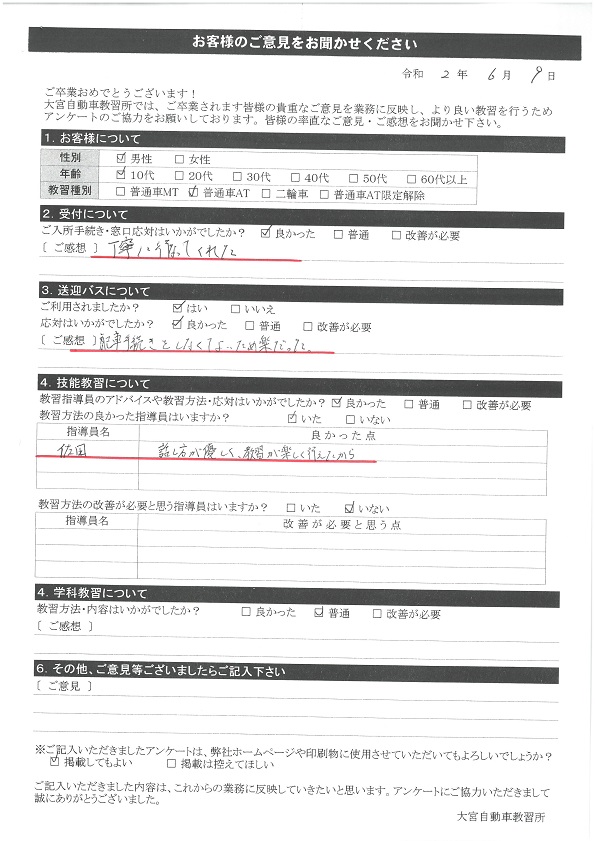 お客様のご意見をお聞かせください
令和 2 年 6 月 9 日
ご卒業おめでとうございます！
大宮自動車教習所では、ご卒業されます皆様の貴重なご意見を業務に反映し、より良い教習を行うため
アンケートのご協力をお願いしております。皆様の率直なご意見・ご感想をお聞かせ下さい。
1. お客様について
性別 ☑男性 □女性
年齢 ☑10代 □20代 □30代 □40代 □50代 □60代以上
教習種別 □普通車MT ☑普通車AT □二輪車 □普通車AT限定解除
2. 受付について
ご入所手続き・窓口応対はいかがでしたか？ ☑良かった □普通 □改善が必要
[ ご感想 ] 丁寧に行なってくれた
3. 送迎バスについて
ご利用されましたか？ ☑はい □いいえ
応対はいかがでしたか？ ☑良かった □普通 □改善が必要
[ ご感想 ] 手続きをしなくてよいため楽だった。
4. 技能教習について
教習指導員のアドバイスや教習方法・応対はいかがでしたか？ ☑良かった □普通 □改善が必要
教習方法の良かった指導員はいますか？ ☑いた □いない
指導員名 良かった点
佐田 話し方が優しく、教習が楽しく行えたから
教習方法の改善が必要と思う指導員はいますか？ □いた ☑いない
指導員名 改善が必要と思う点
4. 学科教習について
教習方法・内容はいかがでしたか？ □良かった ☑普通 □改善が必要
[ ご感想 ]
6. その他、ご意見等ございましたらご記入下さい
[ ご意見 ]
※ご記入いただきましたアンケートは、弊社ホームページや印刷物に使用させていただいてもよろしいでしょうか？
☑掲載してもよい □掲載は控えてほしい
ご記入いただきました内容は、これからの業務に反映していきたいと思います。アンケートにご協力いただきまして
誠にありがとうございました。
大宮自動車教習所